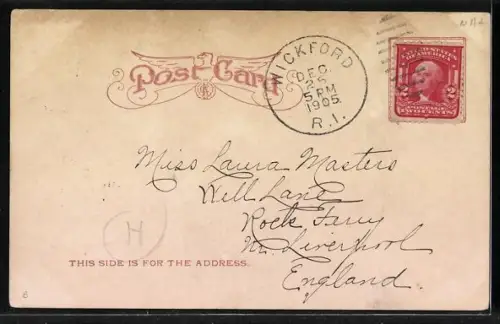 Post Card
WICKFORD
DEC
26
5 PM
1905
R.I.
UNITED STATES
OF AMERICA
2 2
POSTAGE
TWO CENTS
Miss Laura Masters
Well Lane
Rock Ferry
Nr. Liverpool
England.
H
THIS SIDE IS FOR THE ADDRESS.